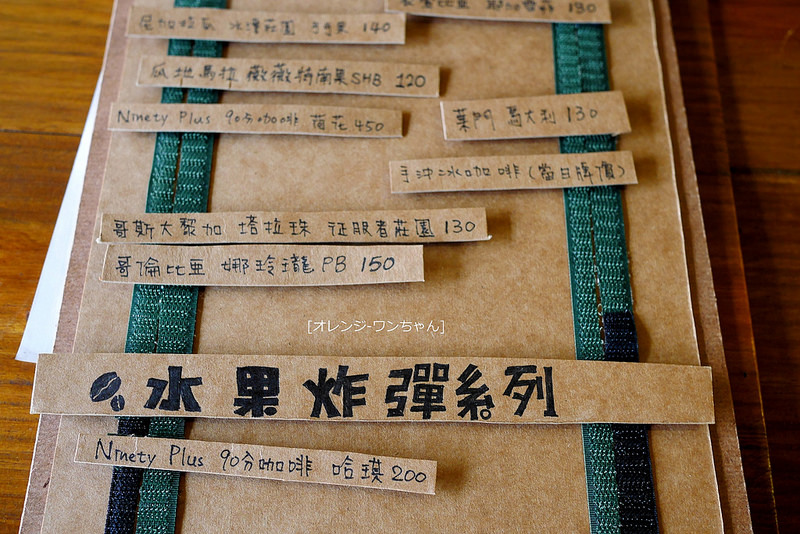 尼加拉瓜 水漾莊園 130
140
瓜地馬拉 薇薇特南果SHB 120
Ninety Plus 90分咖啡 荷花 450
葉門 馬大利 130
手沖冰咖啡(當日牌價)
哥斯大黎加 塔拉珠 征服者莊園 130
哥倫比亞 娜玲瓏 PB 150
[オレンジ-ワンちゃん]
水果炸彈系列
Ninety Plus 90分咖啡 哈瑱 200